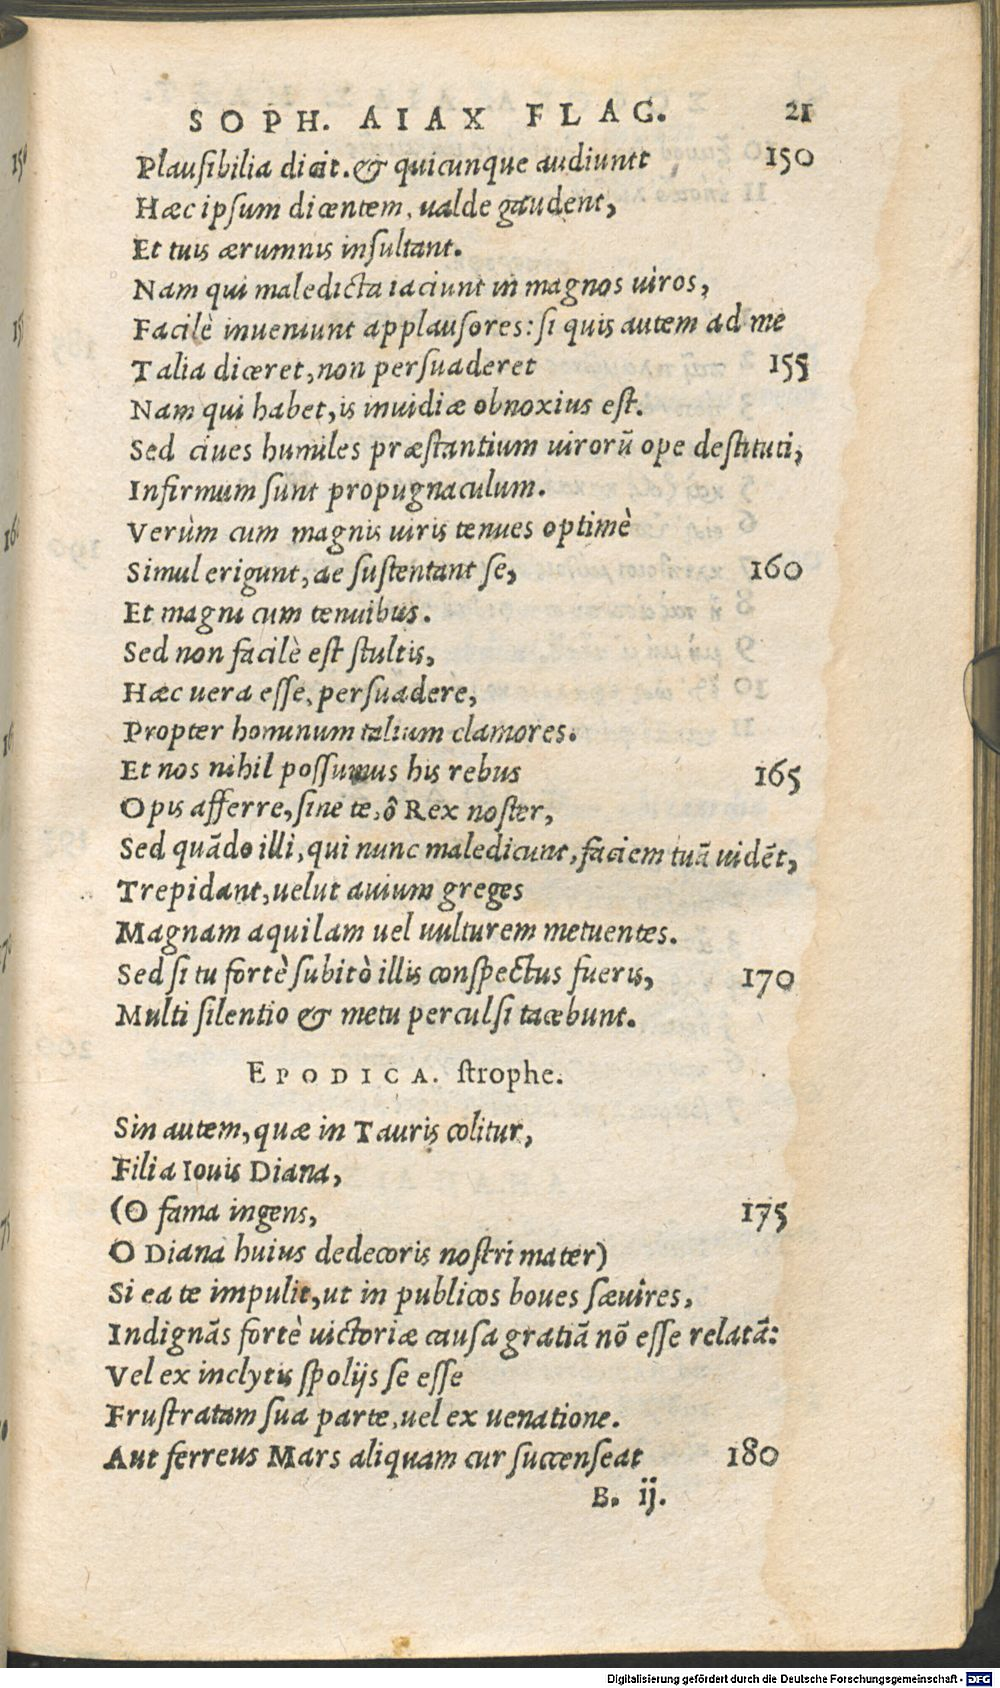 SOPH. AIAX FLAG. 21
Plausibilia dicit. & quicunque audiunt 150
Hæc ipsum dicentem, ualde gaudent,
Et tuis ærumnis insultant.
Nam qui maledicta iaciunt in magnos uiros,
Facilè inueniunt applausores: si quis autem ad me
Talia diceret, non persuaderet 155
Nam qui habet, is inuidiæ obnoxius est.
Sed ciues humiles præstantium uirorũ ope destituti,
Infirmum sunt propugnaculum.
Verùm cum magnis uiris tenues optimè
Simul erigunt, ac sustentant se, 160
Et magni cum tenuibus.
Sed non facilè est stultis,
Hæc uera esse, persuadere,
Propter hominum talium clamores.
Et nos nihil possumus his rebus 165
Opis afferre, sine te, ô Rex noster,
Sed quãdo illi, qui nunc maledicunt, faciem tuã uidẽt,
Trepidant, uelut auium greges
Magnam aquilam uel uulturem metuentes.
Sed si tu fortè subitò illis conspectus fueris, 170
Multi silentio & metu perculsi tacebunt.
EPODICA. strophe.
Sin autem, quæ in Tauris colitur,
Filia Iouis Diana,
(O fama ingens, 175
O Diana huius dedecoris nostri mater)
Si ea te impulit, ut in publicos boues sæuires,
Indignãs fortè uictoriæ causa gratiã nõ esse relatã:
Vel ex inclytis spolijs se esse
Frustratam sua parte, uel ex uenatione.
Aut ferreus Mars aliquam cur succenseat 180
B. ij.
Digitalisierung gefördert durch die Deutsche Forschungsgemeinschaft - DFG